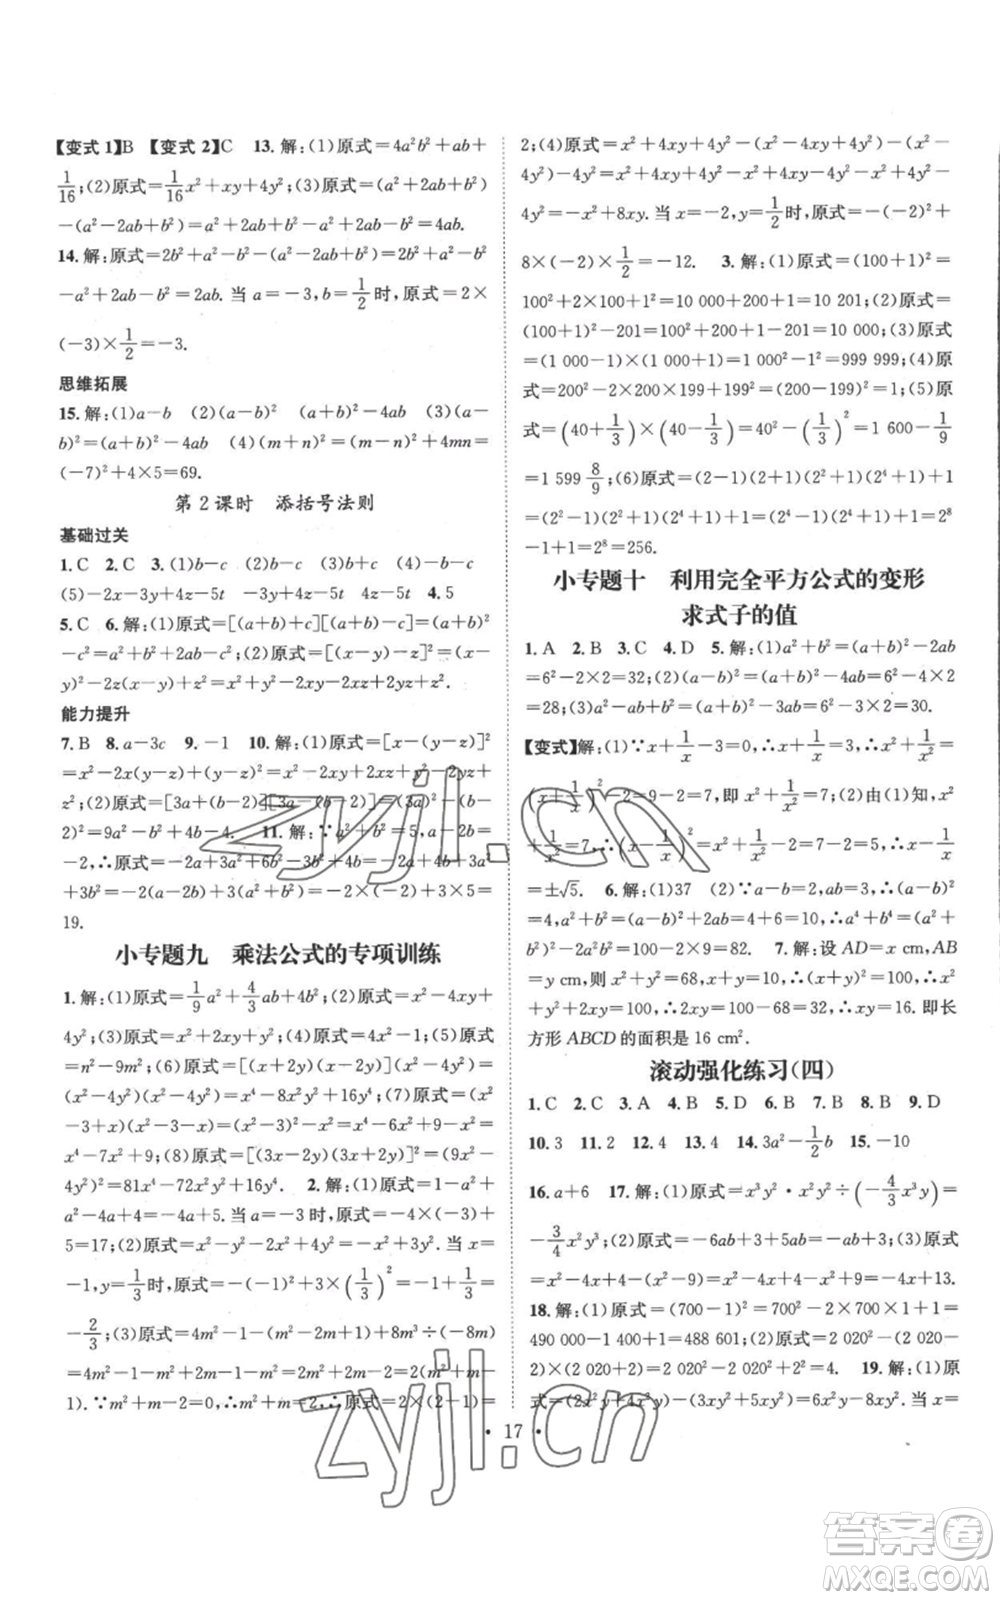 【变式1】B 【变式2】C 13.解:(1)原式=4a²b²+ab+
1/16;(2)原式=1/16x²+xy+4y²;(3)原式=(a²+2ab+b²)
-(a²-2ab+b²)=a²+2ab+b²-a²+2ab-b²=4ab.
14.解:原式=2b²+a²-b²-(a²-2ab+b²)=2b²+
a²-b²-a²+2ab-b²=2ab.当a=-3,b=1/2时,原式=2×
(-3)×1/2=-3.
思维拓展
15.解:(1)a-b (2)(a-b)² (a+b)²-4ab (3)(a-
b)²=(a+b)²-4ab (4)(m+n)²=(m-n)²+4mn=
(-7)²+4×5=69.
第2课时 添括号法则
基础过关
1.C 2.C 3.(1)b-c (2)b-c (3)b+c (4)b-c
(5)-2x-3y+4z-t -3y+4z-t 4.5
5.C 6.解:(1)原式=[(a+b)+c][(a+b)-c]=(a+b)²
-c²=a²+2ab+b²-c²;(2)原式=[(x-y)-z]²=(x-
y)²-2z(x-y)+z²=x²-2xy+y²-2xz+2yz+z².
能力提升
7.B 8.a-3c 9.-1 10.解:(1)原式=[x-(y-z)]²
=x²-2x(y-z)+(y-z)²=x²-2xy+2xz+y²-2yz+
z²;(2)原式=[3a+(b-2)][3a-(b-2)]=(3a)²-(b-
2)²=9a²-b²+4b-4. 11.解:∵a²+b²=5,a-2b=
-2,∴原式=-2a+3a²+6b²-3b²+4b=-2a+4b+3a²
+3b²=-2(a-2b)+3(a²+b²)=-2×(-2)+3×5=
19.
小专题九 乘法公式的专项训练
1.解:(1)原式=1/9a²+4/3ab+4b²;(2)原式=x²-4xy+
4y²;(3)原式=x²+2xy+y²;(4)原式=4x²-1;(5)原式
=n²-9m²;(6)原式=[(x+2y)(x-2y)]²=
(x²-4y²)²=x⁴-8x²y²+16y⁴;(7)原式=(x²
-3+x)(x²-3-x)=(x²-3)²-x²=x⁴-6x²+9-x²=
x⁴-7x²+9;(8)原式=[(3x-2y)(3x+2y)]²=(9x²-
4y²)²=81x⁴-72x²y²+16y⁴. 2.解:(1)原式=1-a²+
a²-4a+4=-4a+5,当a=-3时,原式=-4×(-3)+
5=17;(2)原式=x²-y²-2y²=x²-y²-x²+3y².当x=
-1,y=1/3时,原式=-(-1)²+3×(1/3)²=-1+1/3=
-2/3;(3)原式=4m²-1-(m²-2m+1)+8m³÷(-8m)=
4m²-1-m²+2m-1-m²=2m²+2m-2=2(m²+m-
1).∵m²+m-2=0,∴m²+m=2,∴原式=2×(2-1)=
2;(4)原式=x²+4xy+4y²-(x²-
4y²)-4x²=x²+4xy+4y²-x²+4y²-4x²+
4y²=-x²+8xy.当x=-2,y=1/2时,原式=-(-2)²+
8×(-2)×1/2=-12. 3.解:(1)原式=(100+1)²=
100²+2×100+1=10 000+200+1=10 201;(2)原式=
(100+1)²-201=100²+200+1-201=10 000;(3)原式
=(1 000-1)×(1 000+1)=1 000²-1²=999 999;(4)原
式=200²-2×200×199+199²=(200-199)²=1;(5)原
式=(40+1/3)×(40-1/3)=40²-(1/3)²=1 600-1/9=
1 599 8/9;(6)原式=(2-1)(2+1)(2²+1)(2⁴+1)+1
=(2²-1)(2²+1)(2⁴+1)+1=(2⁴-1)(2⁴+1)+1=2⁸
-1+1=2⁸=256.
小专题十 利用完全平方公式的变形
求式子的值
1.A 2.B 3.C 4.D 5.解:(1)a²+b²=(a+b)²-2ab
=6²-2×2=32;(2)(a-b)²=(a+b)²-4ab=6²-4×2
=28;(3)a²-ab+b²=(a+b)²-3ab=6²-3×2=30.
【变式】解:(1)∵x+1/x-3=0,∴x+1/x=3,∴x²+1/x²=
(x+1/x)²-2=9-2=7,即x²+1/x²=7;(2)由(1)知,x²
+1/x²=7,∴(x-1/x)²=x²+1/x²-2=7-2=5,∴x-1/x
=±√5. 6.解:(1)37 (2)∵a-b=2,∴(a-b)²=
4,a²+b²=(a-b)²+2ab=64+2×9=82. 7.解:设AD=x cm,AB
=y cm,则x²+y²=68,x+y=10,∴(x+y)²=100,∴x²
+y²+2xy=100,∴2xy=100-68=32,∴xy=16.即长
方形ABCD的面积是16 cm².
滚动强化练习(四)
1.C 2.C 3.A 4.B 5.D 6.B 7.B 8.B 9.D
10.3 11.2 12.4 13.4 14.3a²-1/2b 15.-10
16.a+6 17.解:(1)原式=x³y²·x²y²÷(-4/3x³y)=
-3/4x²y³;(2)原式=-6ab+3+5ab=-ab+3;(3)原
式=x²-4x+4-(x²-9)=x²-4x+4-x²+9=-4x+13.
18.解:(1)原式=(700-1)²=700²-2×700×1+1=
490 000-1 400+1=488 601;(2)原式=2 020²-(2 020-
2)×(2 020+2)=2 020²-(2 020²-4)=4. 19.解:(1)原
17